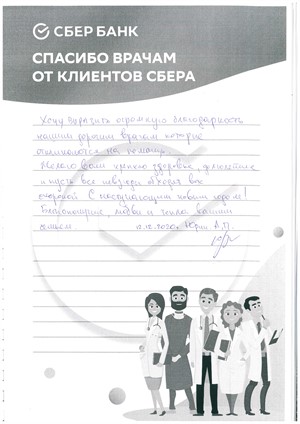 СБЕР БАНК
СПАСИБО ВРАЧАМ
ОТ КЛИЕНТОВ СБЕРА
Хочу выразить огромную благодарность
нашим дорогим врачам которые
откликаются на помощь.
Желаю вам крепкого здоровья,
и пусть все невзгоды обходят вас
стороной С наступающим новым годом!
любви и тепла вашим
семьям. 12.12.2020г. А.П.